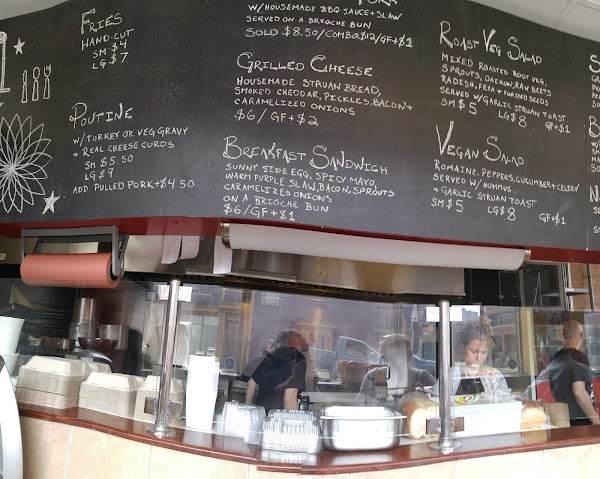 Fries
Hand-cut
SM $4
LG $7
Poutine
w/turkey or veg gravy
+ real cheese curds
SM $5.50
LG $9
Add pulled pork +$4.50
w/housemade BBQ sauce + slaw
served on a brioche bun
Solo $8.50/combo $12/GF+$1
Grilled Cheese
Housemade struan bread,
smoked cheddar, pickles, bacon +
caramelized onions
$6/ GF+$2
Breakfast Sandwich
Sunny side egg, spicy mayo,
warm purple slaw, bacon, sprouts
caramelized onions
on a brioche bun
$6/GF+$1
Roast Veg Salad
Mixed roasted root veg,
sprouts, daikon, raw beets
radish, feta + toasted seeds
served w/garlic struan toast
SM $5 LG $8 GF+$1
Vegan Salad
Romaine, peppers, cucumber + celery
served w/ hummus
+ garlic struan toast
SM $5 LG $8 GF+$1